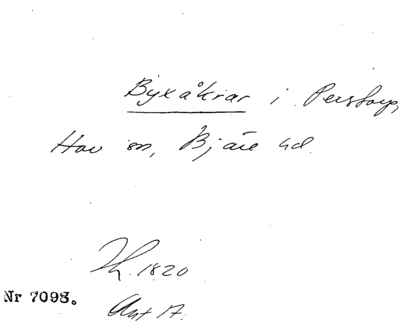 Byxåkrar i Perstorp,
Hov sn, Bjäre hd.
Th. 1820
Nr 7093.
Ant 17.